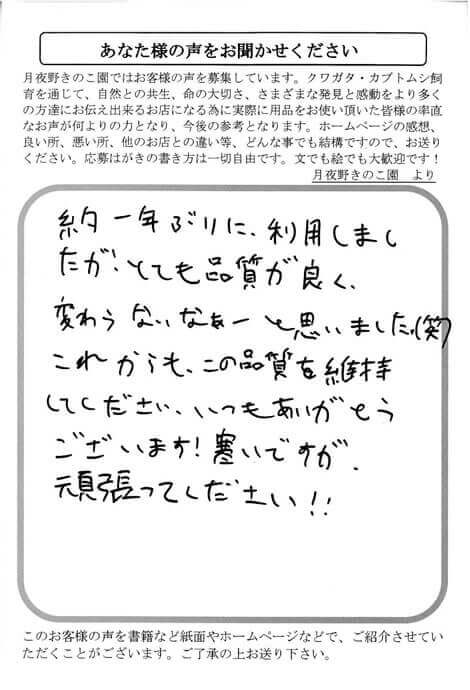 あなた様の声をお聞かせください
月夜野きのこ園ではお客様の声を募集しています。クワガタ・カブトムシ飼
育を通じて、自然との共生、命の大切さ、さまざまな発見と感動をより多く
の方達にお伝え出来るお店になる為に実際に用品をお使い頂いた皆様の率直
なお声が何よりの力となり、今後の参考となります。ホームページの感想、
良い所、悪い所、他のお店との違い等、どんな事でも結構ですので、お送り
ください。応募はがきの書き方は一切自由です。文でも絵でも大歓迎です！
月夜野きのこ園　より
約一年ぶりに、利用しまし
たが、とても品質が良く、
変わらないなぁーと思いました。(笑)
これからも、この品質を維持
してください、いつもありがとう
ございます！寒いですが、
頑張ってください！！
このお客様の声を書籍など紙面やホームページなどで、ご紹介させてい
ただくことがございます。ご了承の上お送り下さい。